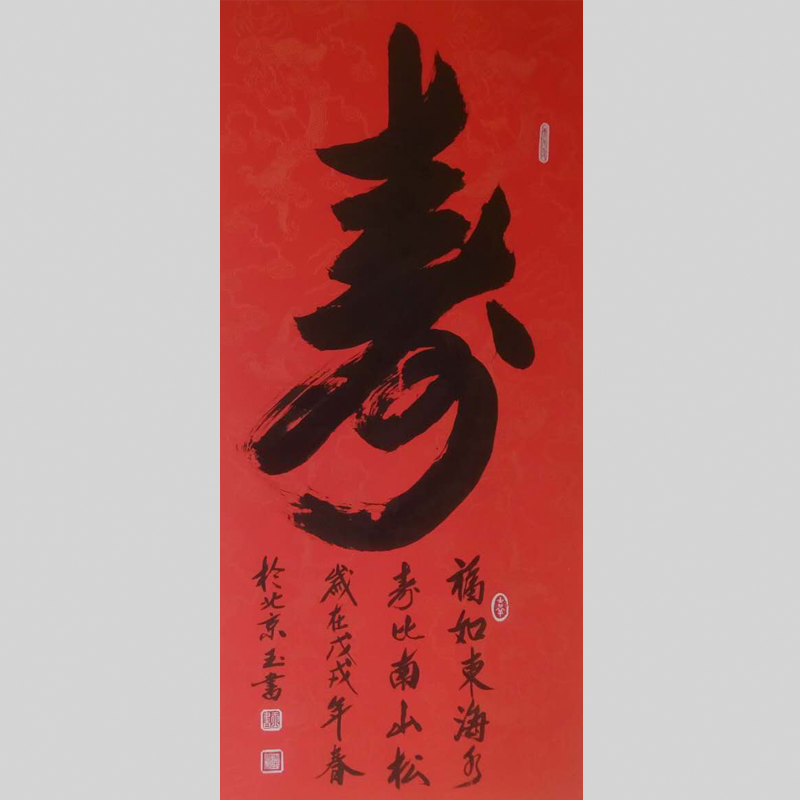 寿
福如東海水
寿比南山松
歲在戊戌年春
於北京玉書